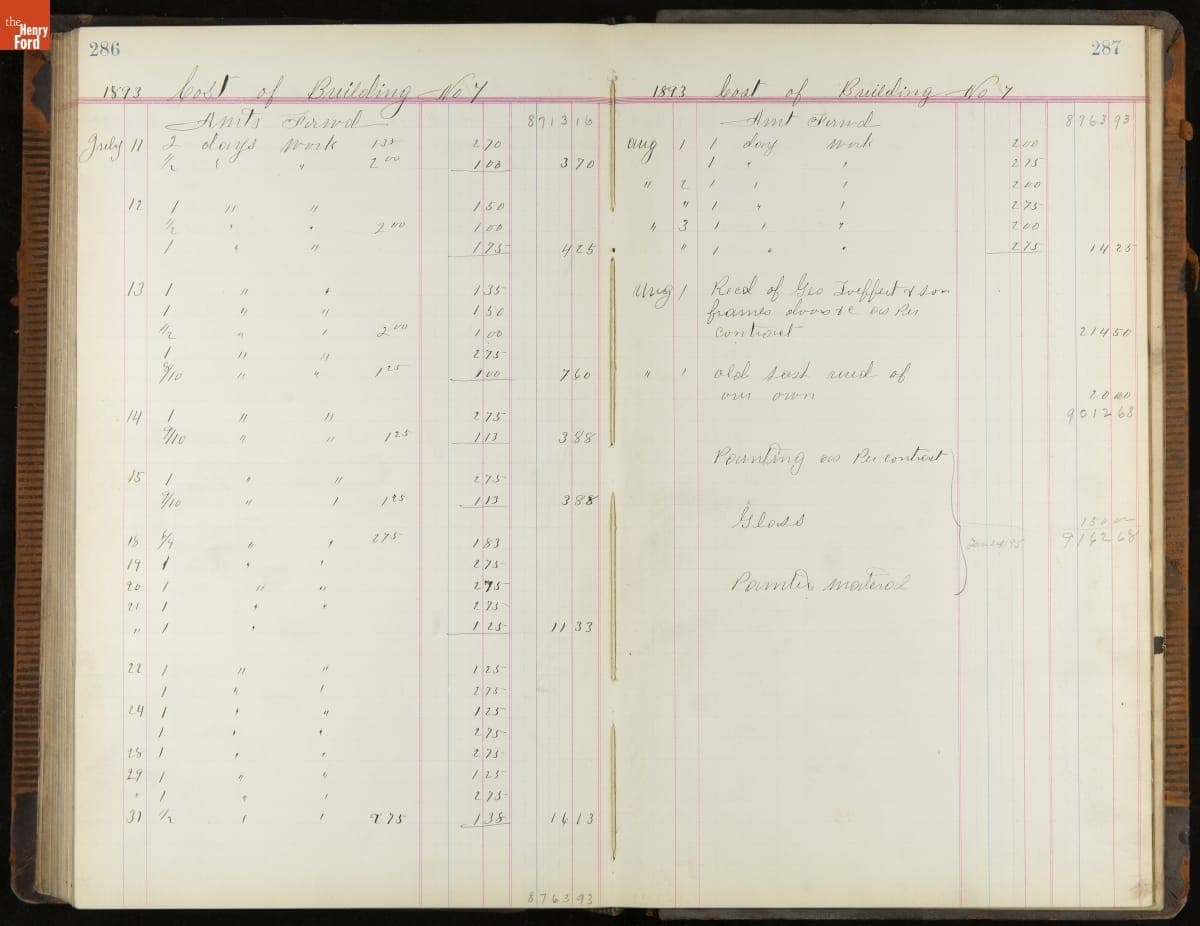 the Henry Ford
286
1893 Cost of Building No 7
Amts Forwd 8713 16
July 11 2 days work 135 2 70
1/2 " " 2 00 1 00 3 70
12 1 " " 1 50
1/2 " " 2 00 1 00
1 " " 1 75 4 25
13 1 " " 1 35
1 " " 1 50
1/2 " " 2 00 1 00
1 " " 2 75
8/10 " " 1 25 1 00 7 60
14 1 " " 2 75
9/10 " " 1 25 1 13 3 88
15 1 " " 2 75
9/10 " " 1 25 1 13 3 88
18 6/9 " " 2 75 1 83
19 1 " " 2 75
20 1 " " 2 75
21 1 " " 2 75
" 1 " 1 25 11 33
22 1 " " 1 25
1 " " 2 75
24 1 " " 1 25
1 " " 2 75
28 1 " " 2 75
29 1 " " 1 25
" 1 " " 2 75
31 1/2 " " 2 75 1 38 16 13
8763 93
287
1893 Cost of Building No 7
Amt Forwd 8763 93
Aug 1 1 day work 2 00
1 " " 2 75
" 2 1 " " 2 00
" 1 " " 2 75
" 3 1 " " 2 00
" 1 " " 2 75 14 25
Aug 1 Recd of Geo & son
frames doors &c as Per
contract 214 50
" 1 old sash used of
our own 20 00
9012 68
Painting as Per contract
Glass 150 00
Jan 24/95 9162 68
Painter material